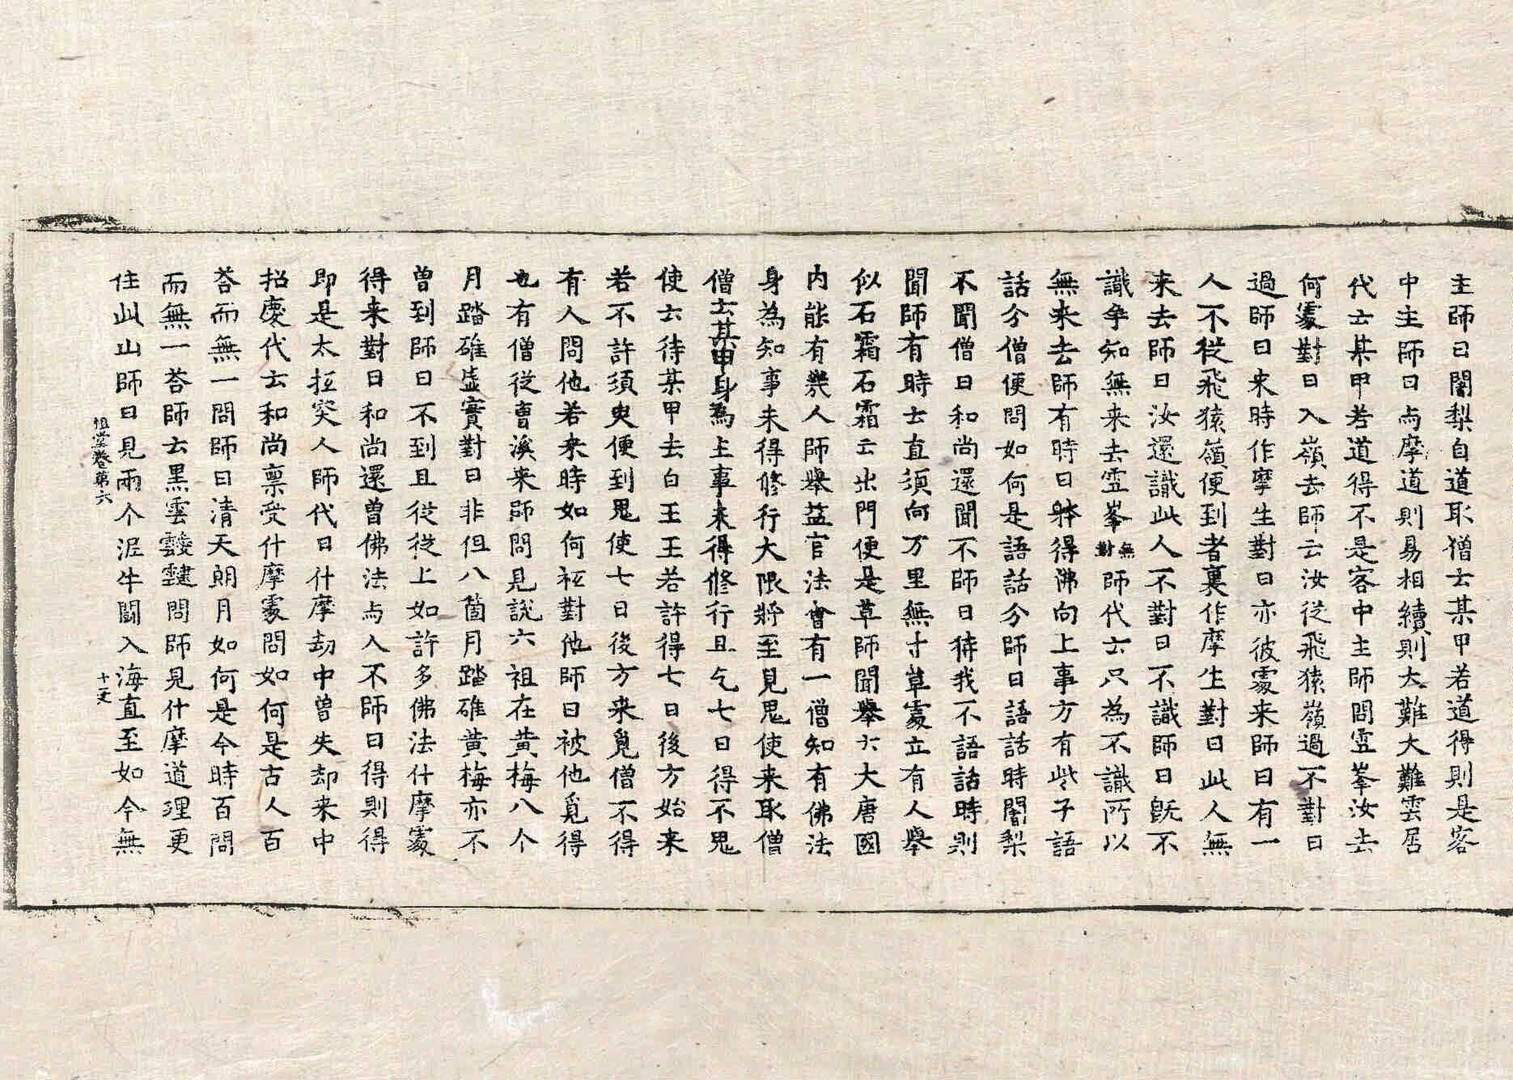 主師曰闍梨自道取僧云某甲若道得則是客
中主師曰与摩道則易相續則大難大難雲居
代云某甲若道得不是客中主師問雪峯汝去
何處對曰入嶺去師云汝從飛猿嶺過不對曰
過師曰来時作摩生對曰亦彼處来師曰有一
人不從飛猿嶺便到者裏作摩生對曰此人無
来去師曰汝還識此人不對曰不識師曰既不
識争知無来去雪峯無對師代云只為不識所以
無来去師有時曰體得佛向上事方有些子語
話分僧便問如何是語話分師曰語話時闍梨
不聞僧曰和尚還聞不師曰待我不語話時則
聞師有時云直須向万里無寸草處立有人舉
似石霜石霜云出門便是草師聞舉云大唐國
内能有幾人師舉塩官法會有一僧知有佛法
身為知事未得修行大限將至見鬼使来取僧
僧云某甲身為主事未得修行且乞七日得不鬼
使云待某甲去白王王若許得七日後方始来
若不許須臾便到鬼使七日後方来覓僧不得
有人問他若来時如何祗對他師曰被他覓得
也有僧從曹溪来師問見說六祖在黃梅八个
月踏碓虛實對曰非但八箇月踏碓黃梅亦不
曽到師曰不到且從從上如許多佛法什摩處
得来對曰和尚還曽佛法与人不師曰得則得
即是太抂突人師代曰什摩劫中曽失却来中
招慶代云和尚稟受什摩處問如何是古人百
荅而無一問師曰清天朗月如何是今時百問
而無一荅師云黒雲靉靆問師見什摩道理更
住此山師曰見兩个泥牛鬪入海直至如今無
祖堂卷第六 十丈